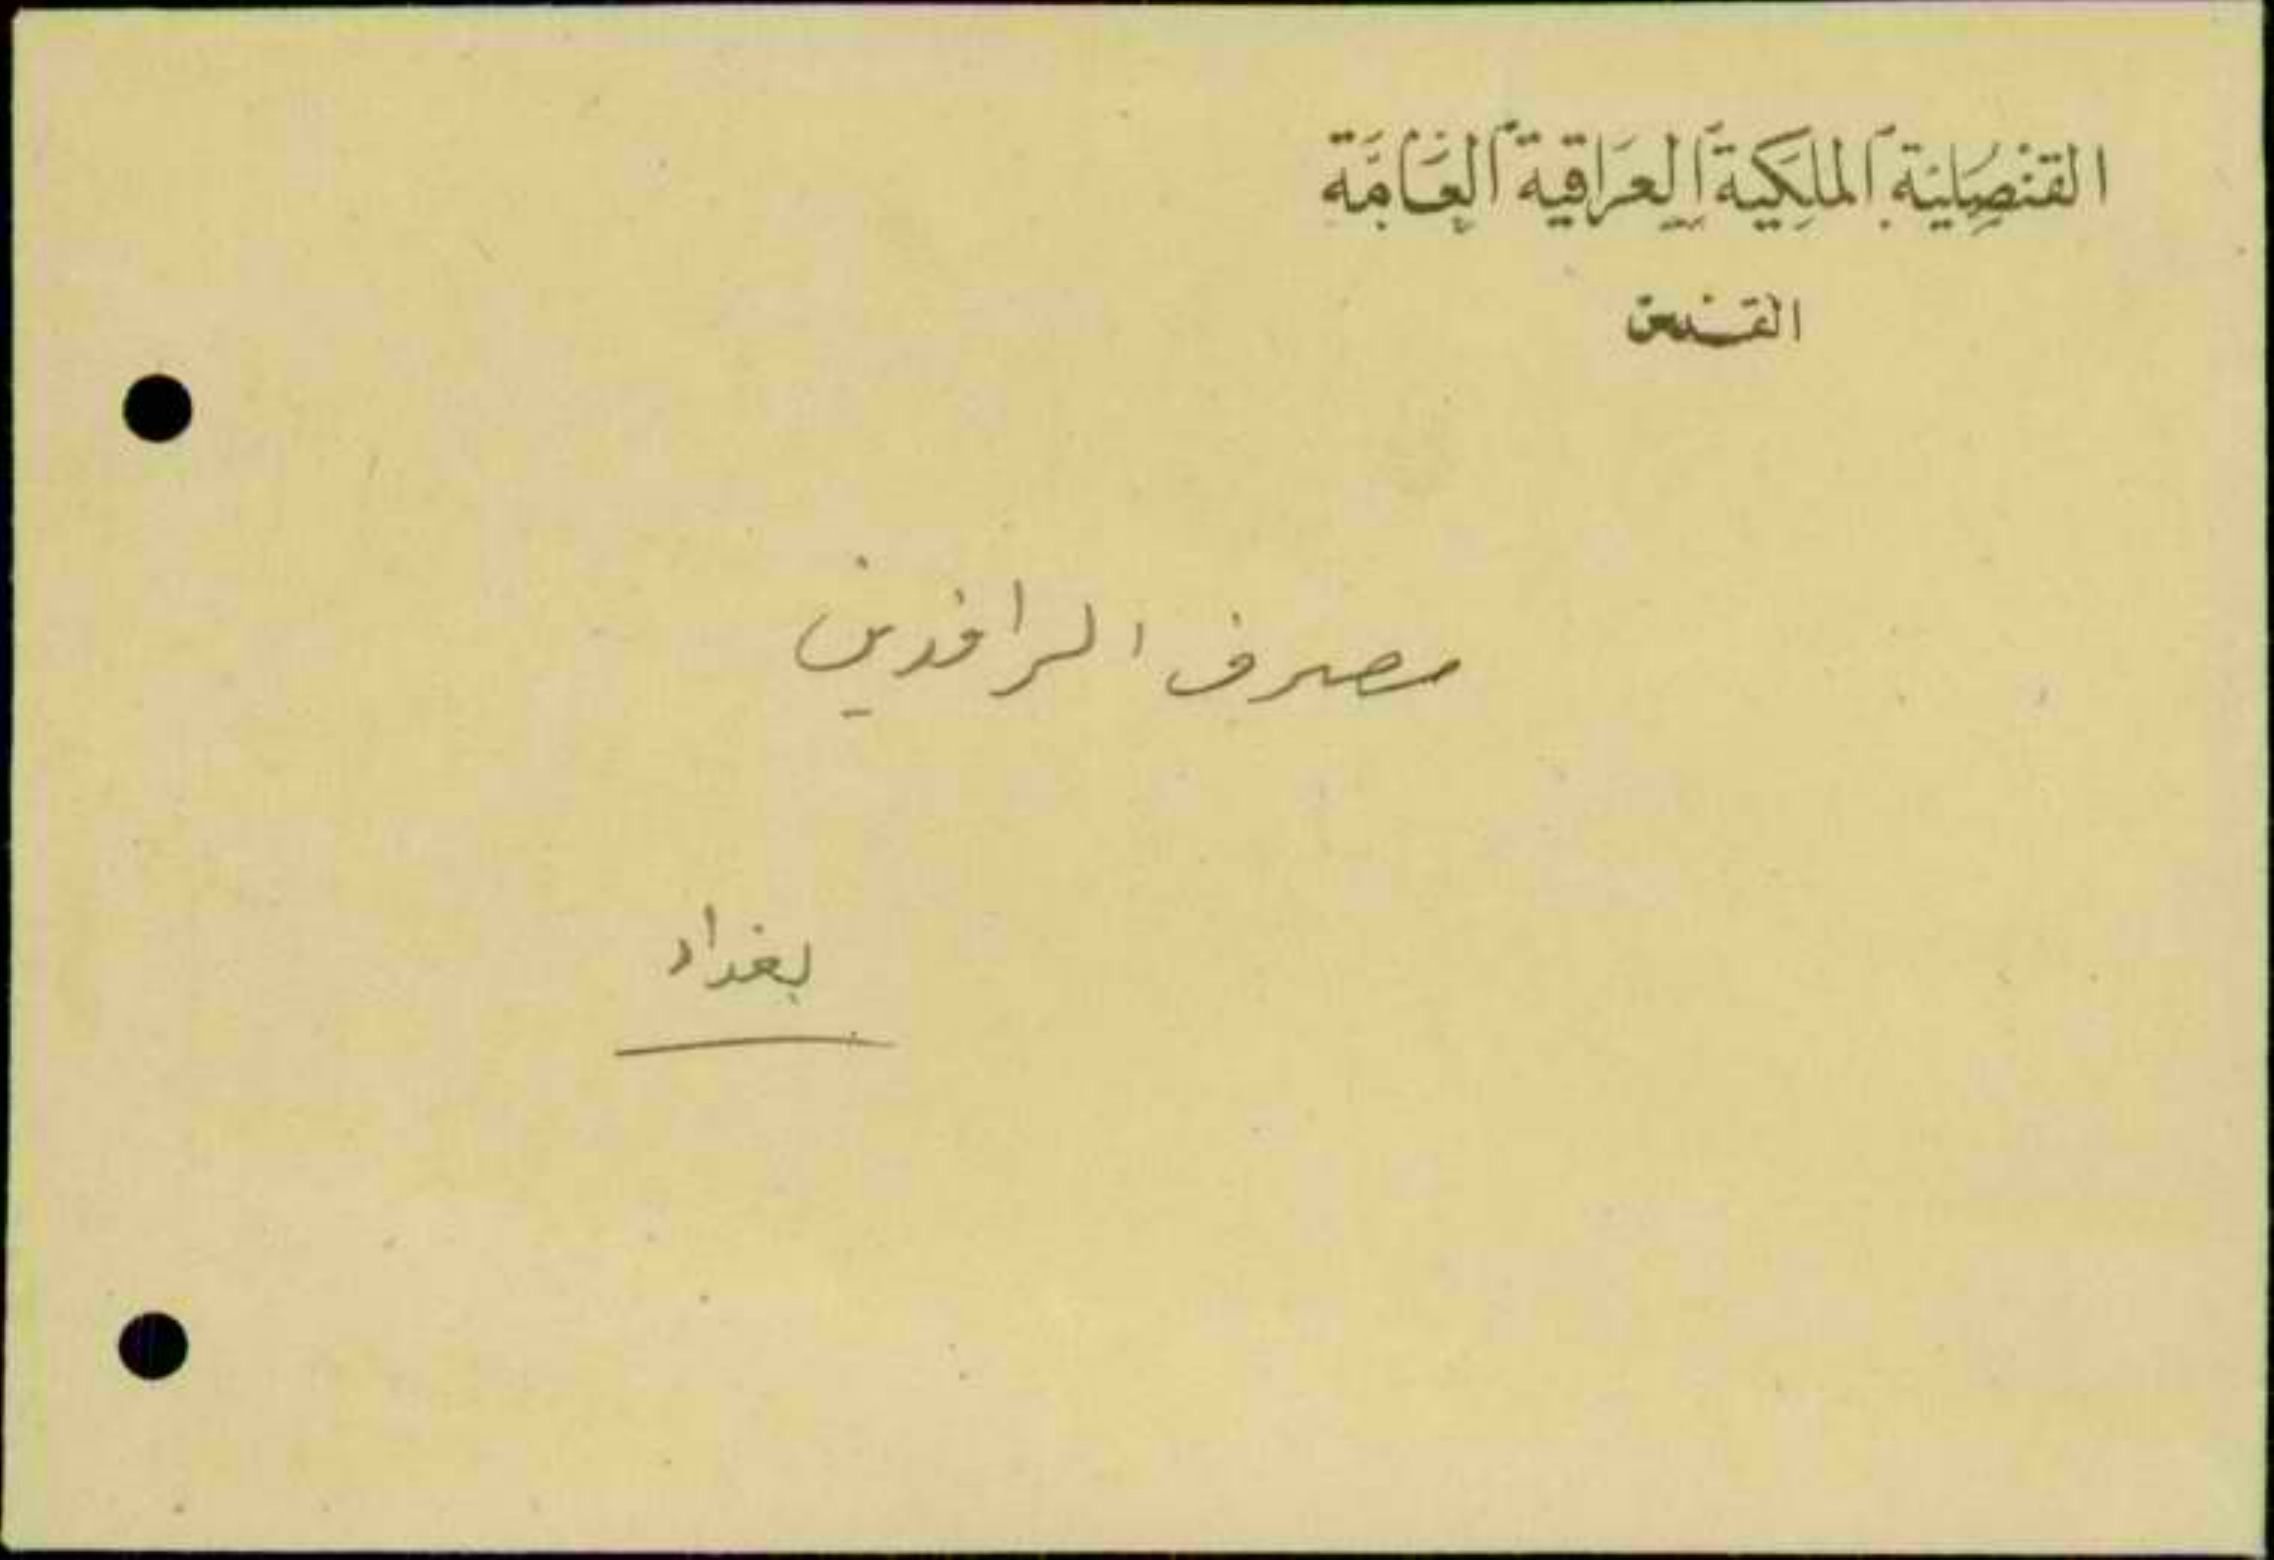 القنصلية الملكية العراقية العامة
القدس
مصرف الرافدين
بغداد